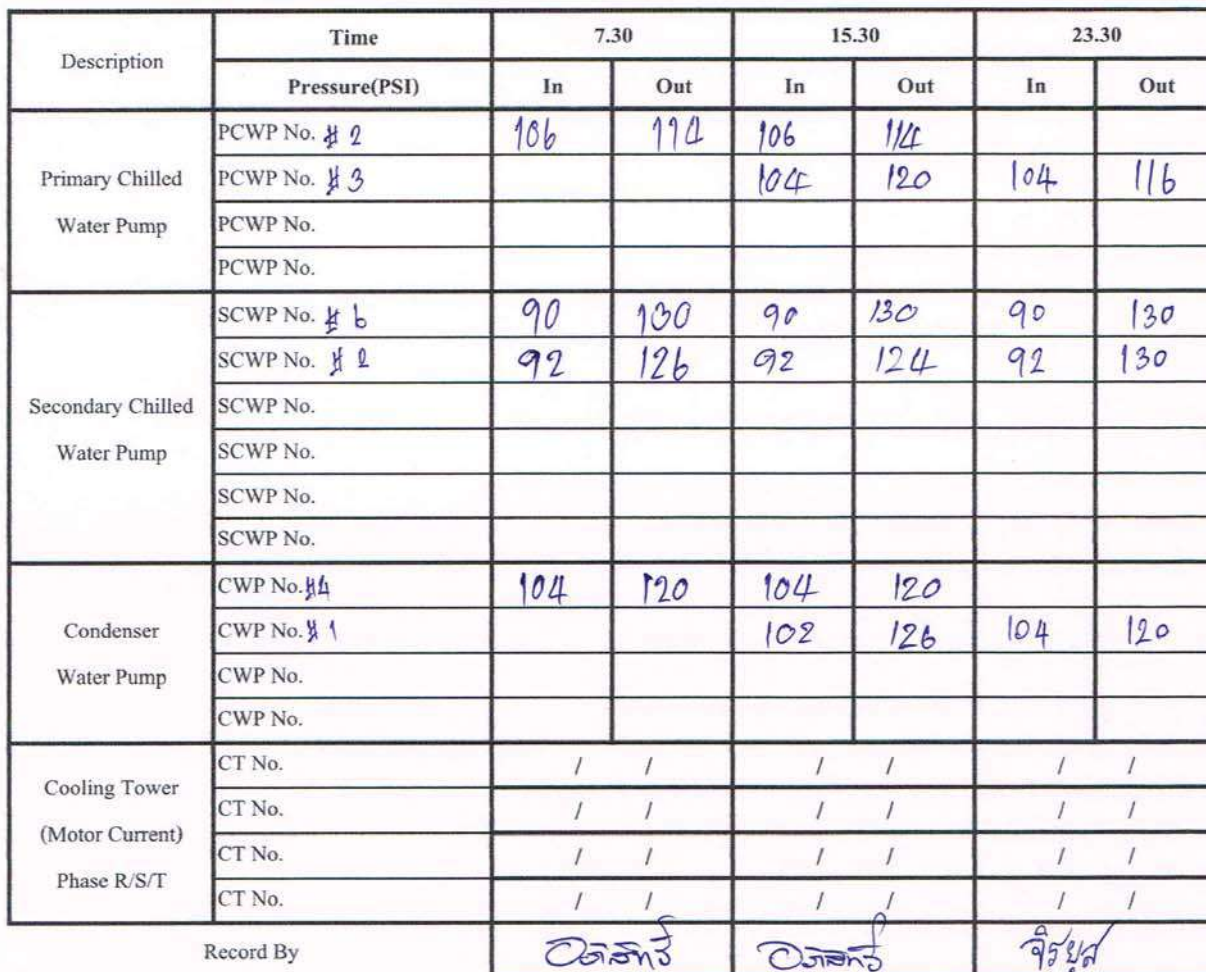 Description Time 7.30 15.30 23.30
Pressure(PSI) In Out In Out In Out
Primary Chilled Water Pump
PCWP No. # 2 106 114 106 114
PCWP No. # 3 104 120 104 116
PCWP No.
PCWP No.
Secondary Chilled Water Pump
SCWP No. # 6 90 130 90 130 90 130
SCWP No. # 2 92 126 92 124 92 130
SCWP No.
SCWP No.
SCWP No.
SCWP No.
Condenser Water Pump
CWP No. #4 104 120 104 120
CWP No. # 1 102 126 104 120
CWP No.
CWP No.
Cooling Tower (Motor Current) Phase R/S/T
CT No. / / / / / /
CT No. / / / / / /
CT No. / / / / / /
CT No. / / / / / /
Record By